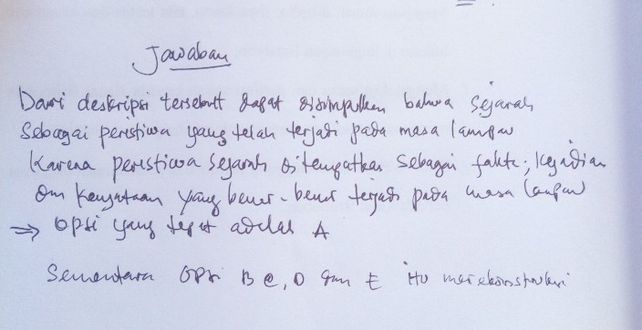 Jawaban
Dari deskripsi tersebut dapat disimpulkan bahwa sejarah
sebagai peristiwa yang telah terjadi pada masa lampau
karena peristiwa sejarah ditempatkan sebagai fakta, kejadian
dan kenyataan yang benar-benar terjadi pada masa lampau
⇒ opsi yang tepat adalah A
Sementara opsi B C, D dan E itu merekonstruksi